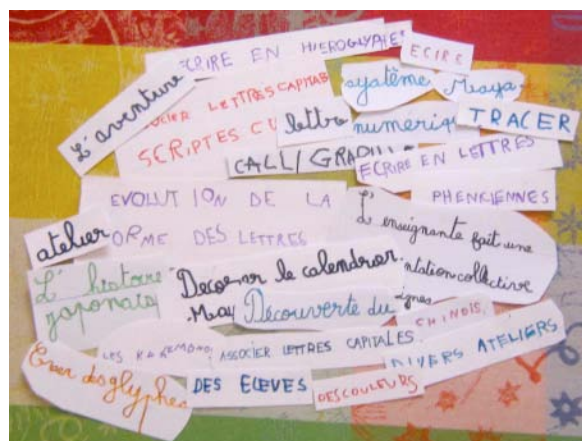 ECRIRE EN HIEROGLYPHES
ECIRE
L'aventure
LETTRES CAPITA
SCRIPTES CU
système Maya
lettre
numériq
TRACER
CALLIGRA
ECRIRE EN LETTRES
PHENICIENNES
EVOLUTION DE LA
ORME DES LETTRES
atelier
L'enseignante fait une
ntation collective
L'histoire
japonais
Décorer le calendrier
Maya
Découverte du
ignes
CHINOIS
LES
ASSOCIER LETTRES CAPITALES
DIVERS ATELIERS
Créer des glyphes
DES ELEVES
DES COULEURS